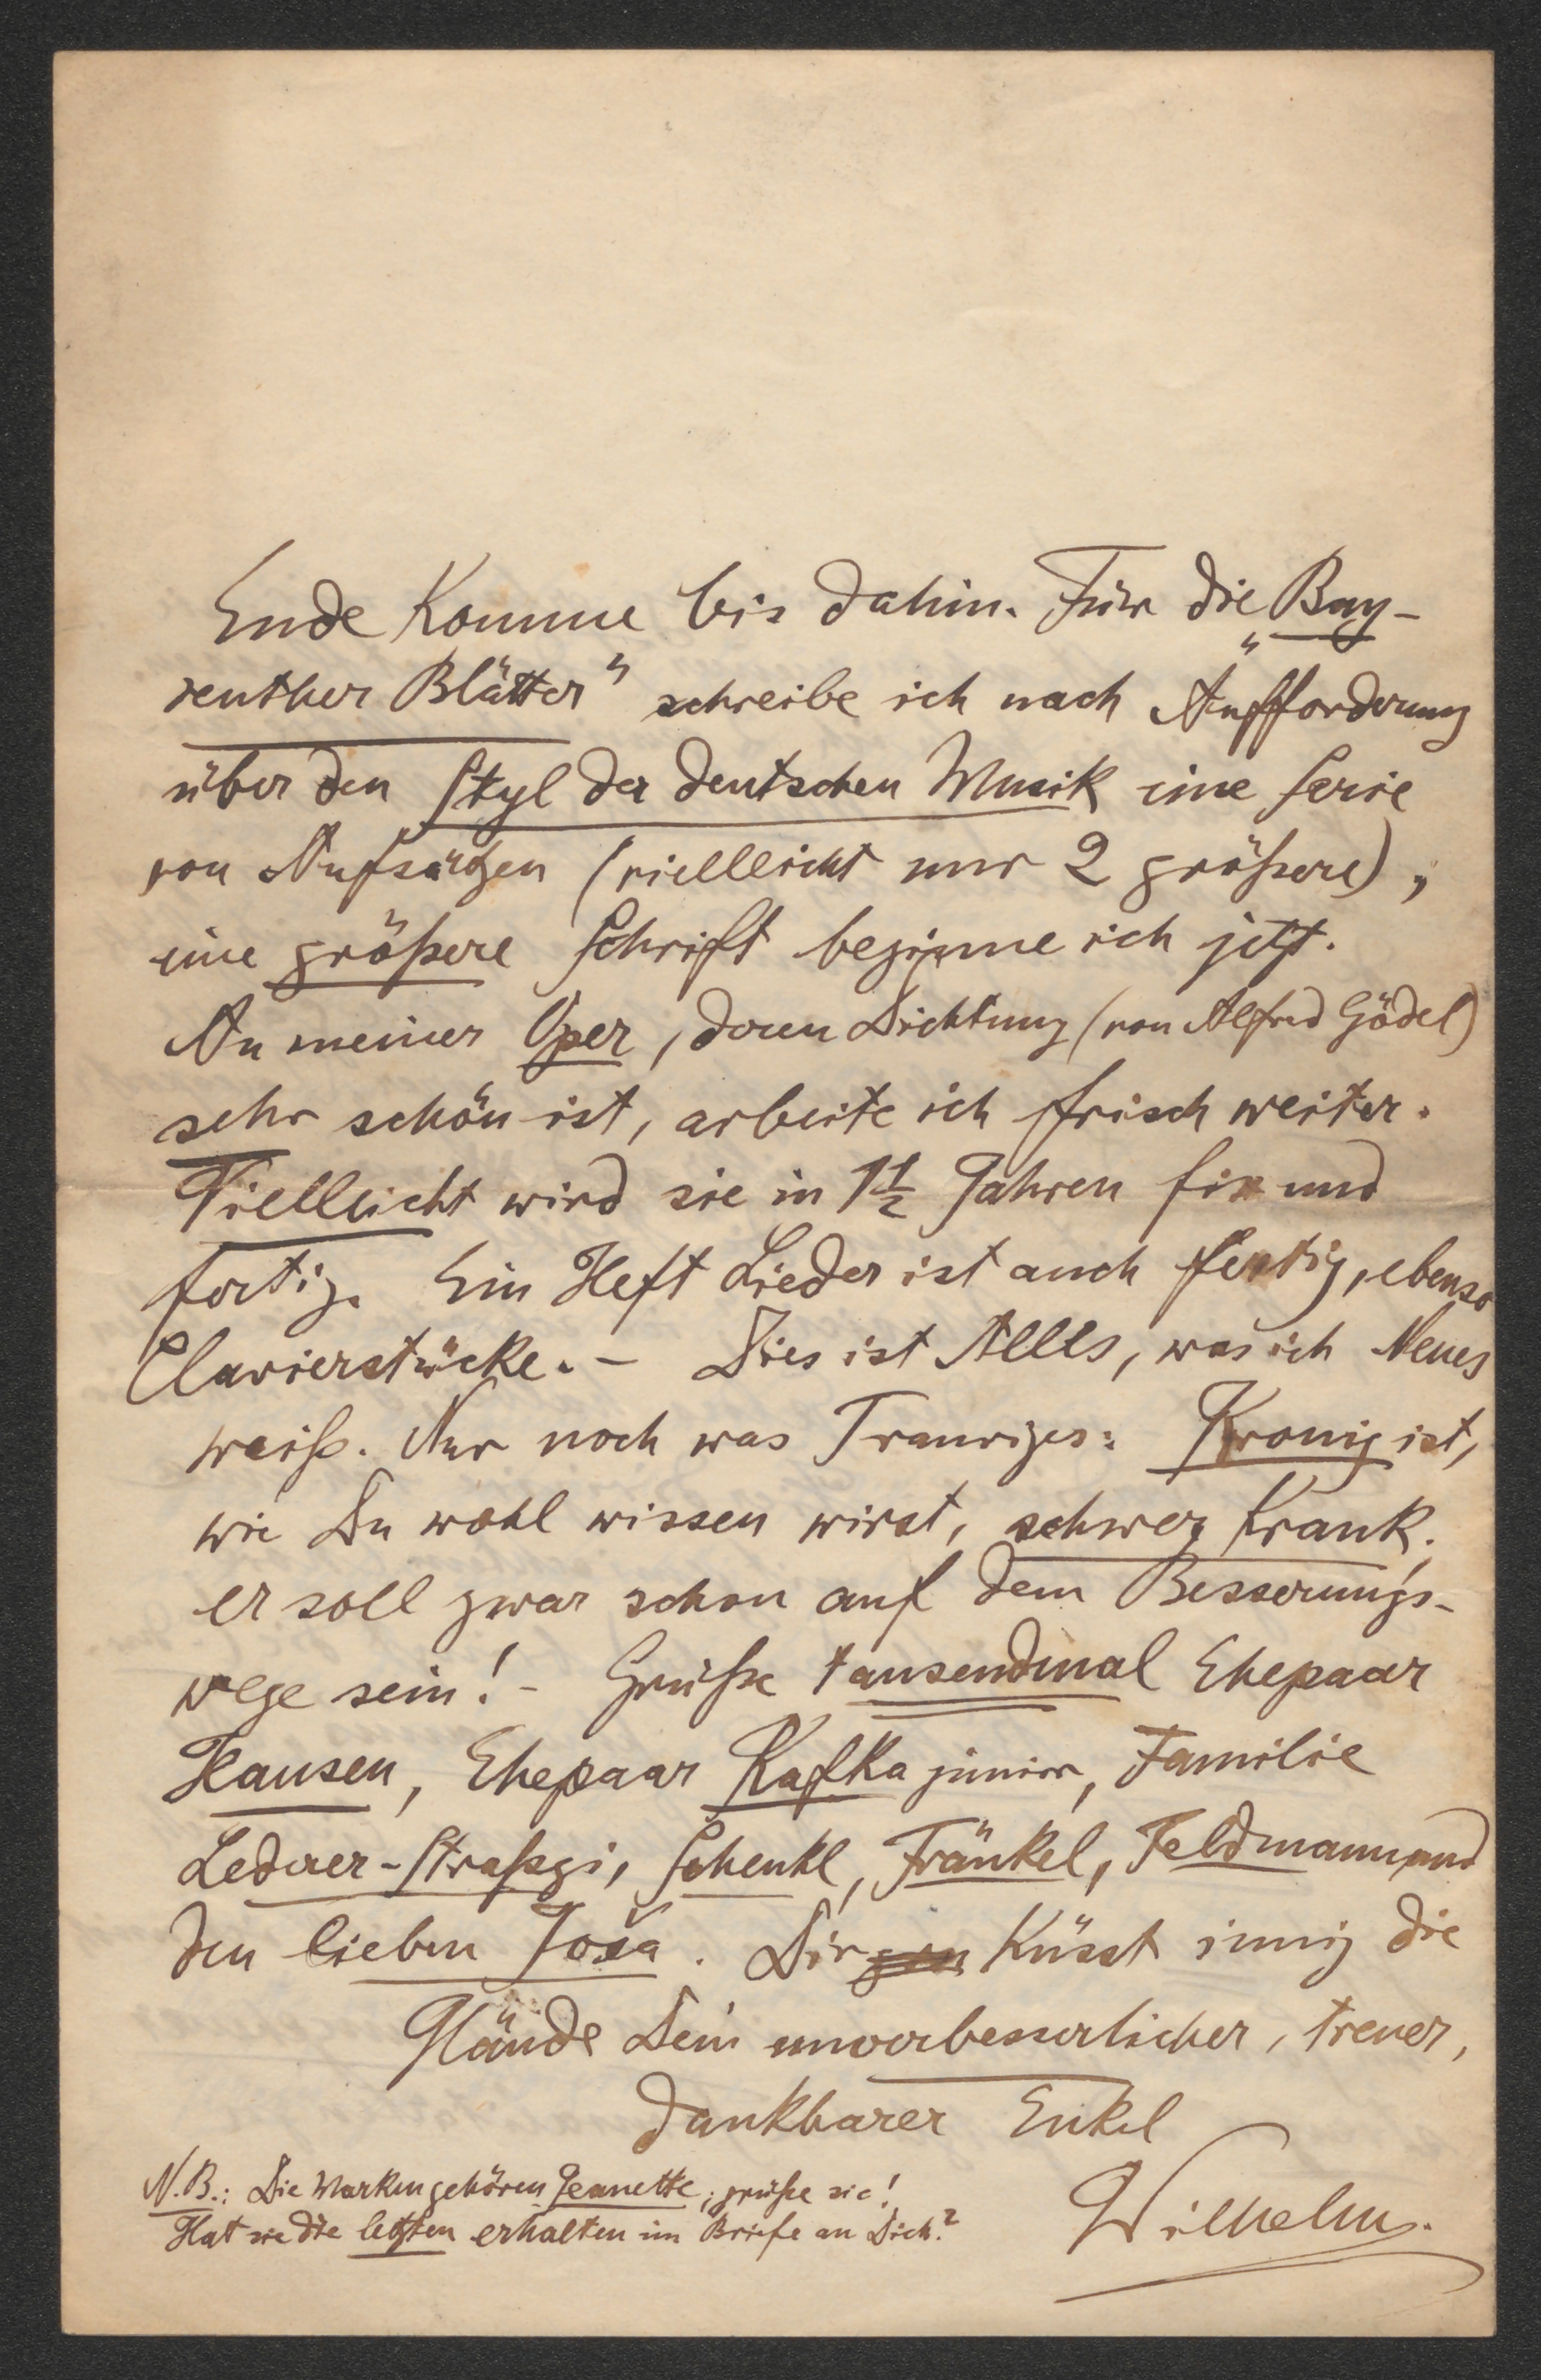 Ende Komme bis dahin. Für die „Bay-
reuther Blätter" schreibe ich nach Aufforderung
über den Styl der deutschen Musik eine Serie
von Aufsätzen (vielleicht nur 2 größere),
eine größere Schrift beginne ich jetzt.
An meiner Oper, deren Dichtung (von Alfred Gödel)
sehr schön ist, arbeite ich frisch weiter.
Vielleicht wird sie in 1 1/2 Jahren fix und
fertig. Ein Heft Lieder ist auch fertig, ebenso
Clavierstücke. – Dies ist Alles, was ich Neues
weiß. Nur noch was Trauriges: Kronig ist,
wie Du wohl wissen wirst, schwer krank.
er soll zwar schon auf dem Besserungs-
wege sein! – Grüße tausendmal Ehepaar
Hansen, Ehepaar Kafka junior, Familie
Lederer-Straßgi, Schenkl, Fränkel, Feldmann und
den lieben Joža. Dir küsst innig die
Hände Dein unverbesserlicher, treuer,
dankbarer Enkel
Wilhelm.
N.B.: Die Marken gehören Jeanette; grüße sie!
Hat sie die letzten erhalten im Briefe an Dich?